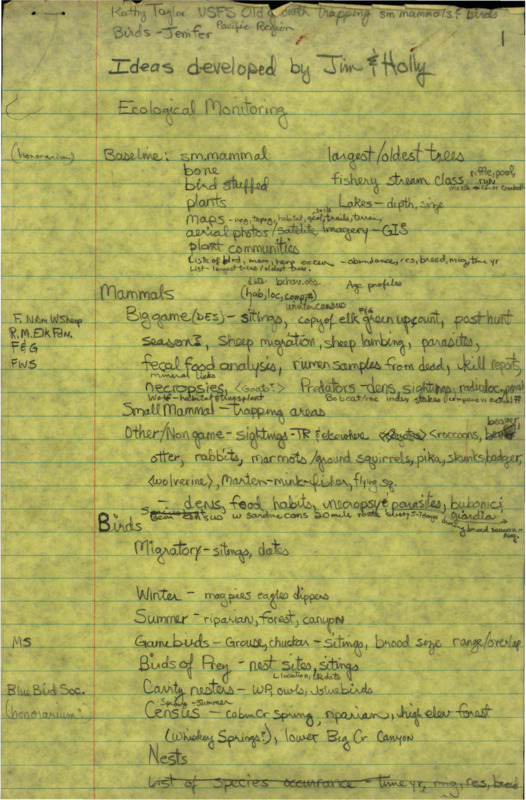 Kathy Taylor USFS Old growth trapping sm mammals & Birds
Birds - Jenifer Pacific Region
1
Ideas developed by Jim & Holly
Ecological Monitoring
(honorarium)
Baseline: sm. mammal
bone
bird stuffed
plants
maps - veg, topog, habitat, geol, trails, terrain,
aerial photos/satelite Imagery - GIS
plant communities
Lists of bird, mam, herp occur - abundance, res, breed, mig, time yr
List - largest trees/oldest trees.
largest/oldest trees
fishery stream class, riffle, pool, run
Lakes - depth, size
Mammals (hab, loc, comp, #) Age profiles
winter census
F. N. Am W Sheep
R. M. Elk Fdn.
F & G
FWS
Big game (DES) - sitings, copy of elk green up count, post hunt
season, sheep migration, sheep lambing, parasites,
fecal food analysis, rumen samples from dead, kill reports,
mineral licks
necropsies, <Goats?> Predators - dens, sightings, radio loc,
Small Mammal - trapping areas
Other/Non game - sightings - TR & elsewhere <raccoons, beaver,
otter, rabbits, marmots/ground squirrels, pika, skunks, badger,
<wolverine>, Marten - mink - fisher, flying sq.
- dens, food habits, necropsy & parasites, bubonic,
w sardine cans 20 mile route giardia
during breed season - Aug.
Birds
Migratory - sitings, dates
Winter - magpies eagles dippers
Summer - riparian, forest, canyon
MS
Gamebirds - Grouse, chuckar - sitings, brood size range/overlap
Birds of Prey - nest sites, sitings
Location,
Blue Bird Soc.
(honorarium?)
Cavity nesters - WP, owls, bluebirds
Spring - Summer
Census - cabin Cr Spring, riparian, high elev forest
(Whiskey Springs?), lower Big Cr Canyon
Nests
List of Species occurrance - time yr, mig, res, breed